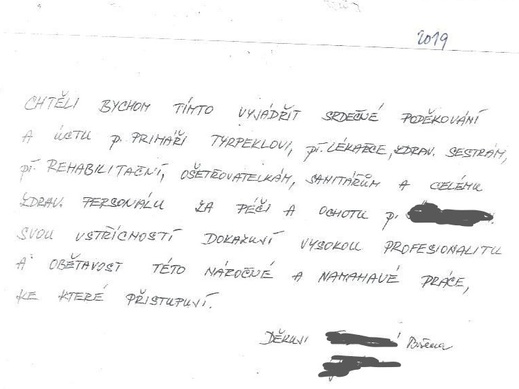 2019
CHTĚLI BYCHOM TÍMTO VYJÁDŘIT SRDEČNÉ PODĚKOVÁNÍ
A ÚCTU p. PRIMÁŘI TYRPEKLOVI, pí. LÉKAŘCE, ZDRAV. SESTRÁM,
pí. REHABILITAČNÍ, OŠETŘOVATELKÁM, SANITÁŘŮM A CELÉMU
ZDRAV. PERSONÁLU ZA PÉČI A OCHOTU p.
SVOU VSTŘÍCNOSTÍ DOKAZUJÍ VYSOKOU PROFESIONALITU
A OBĚTAVOST TÉTO NÁROČNÉ A NAMAHAVÉ PRÁCE,
KE KTERÉ PŘISTUPUJÍ.
DĚKUJI Božena